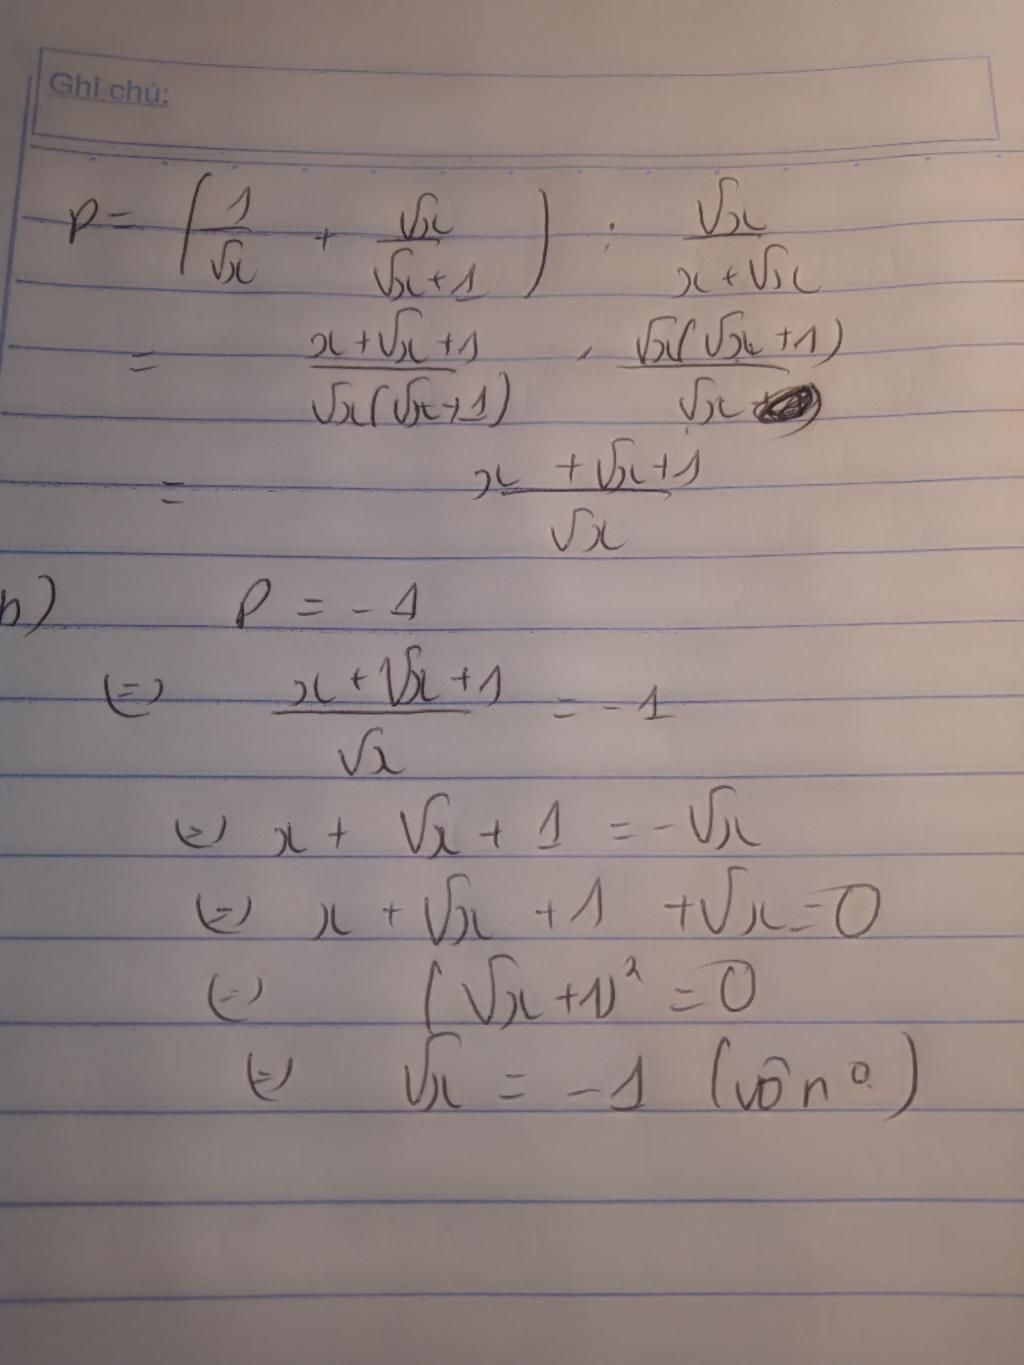 Ghi chú:
P = ( 1/√x + √x/(√x + 1) ) : √x/(x + √x)
= (x + √x + 1)/(√x(√x + 1)) . √x(√x + 1)/√x
= (x + √x + 1)/√x
b) P = -1
(=) (x + √x + 1)/√x = -1
(=) x + √x + 1 = -√x
(=) x + √x + 1 + √x = 0
(=) (√x + 1)² = 0
(=) √x = -1 (vô n⁰)